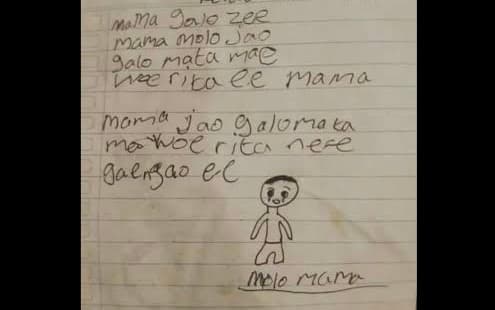 mama galo zee
mama molo jao
galo mata mae
rita ee mama
mama jao galo mata
woe rita nese
ee
molo mama